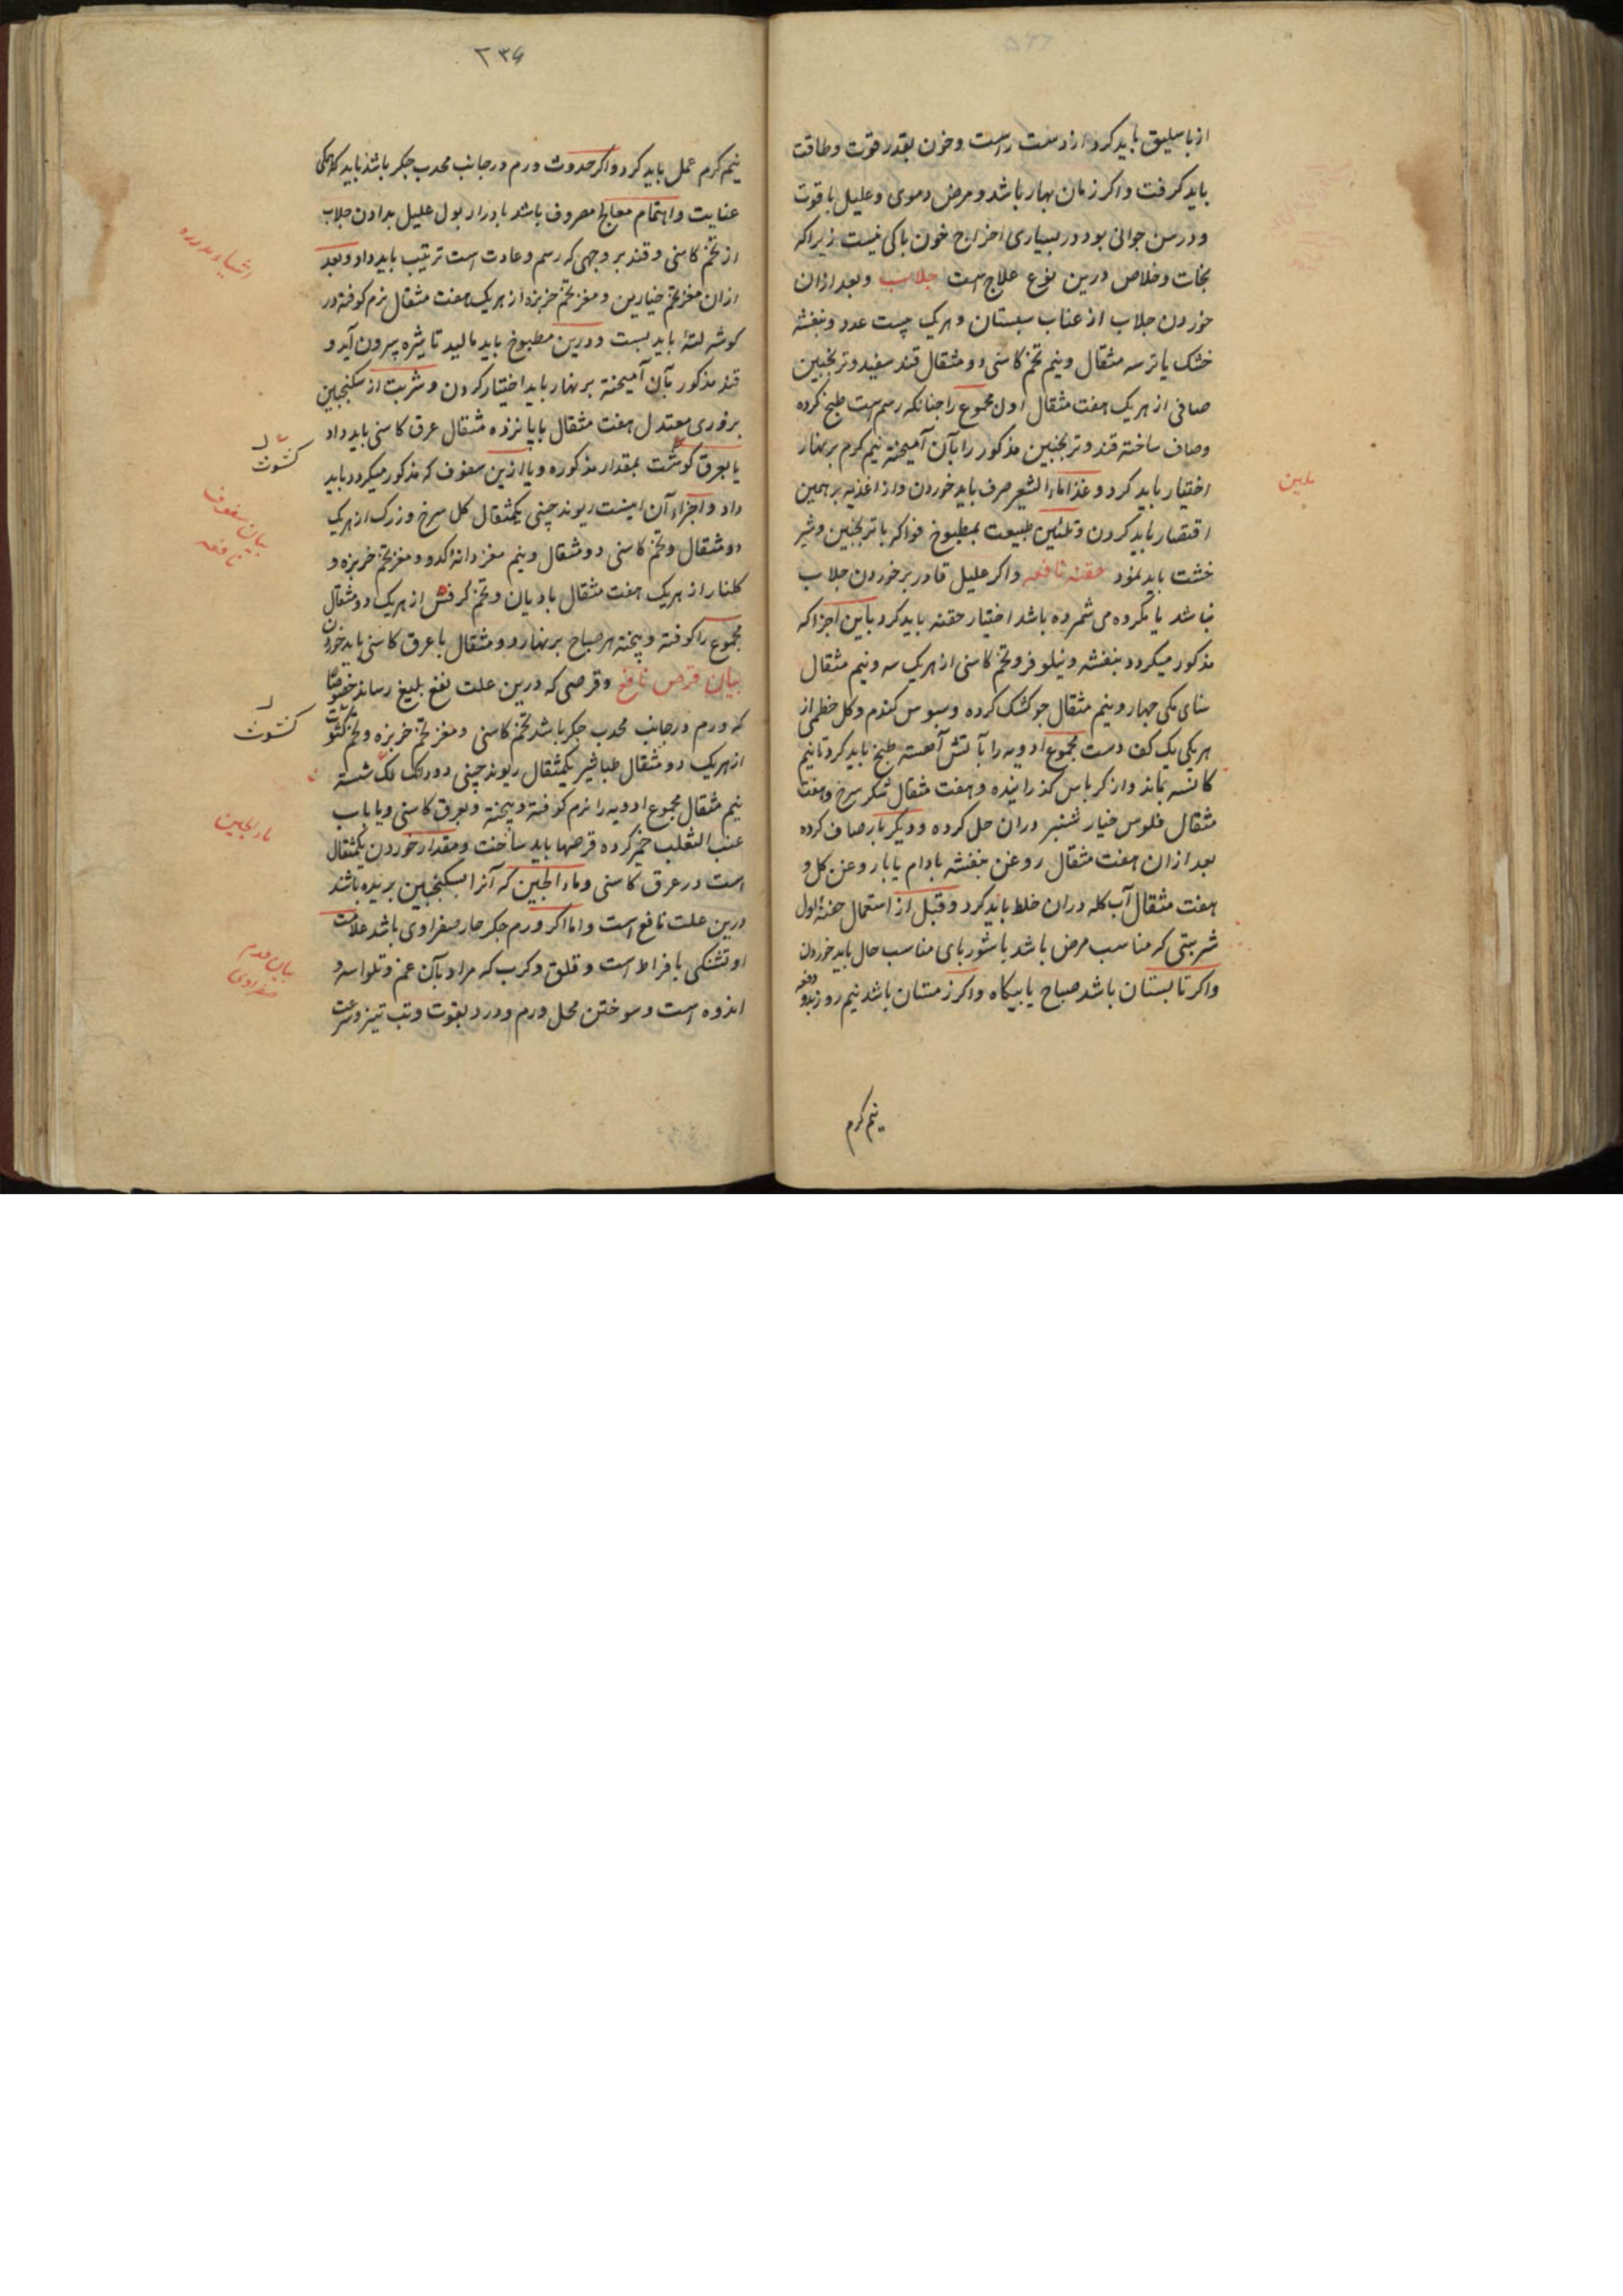 از باسلیق باید کرد از دست راست و خون بقدر قوت و طاقت
باید کرفت و اکر زمان بهار باشد و مرض دموی و علیل با قوت
و در سن جوانی بود در بسیاری اخراج خون باکی نیست زیرا که
نجات و خلاص درین نوع علاج است جلاب و بعد ازان
خوردن جلاب از عناب سبستان و هریک بیست عدد و بنفشه
خشک یا تر سه مثقال و نیم تخم کاسنی دو مثقال قند سفید و ترنجبین
صافی از هریک هفت مثقال اول مجموع را جنانکه رسم است طبخ کرده
و صاف ساخته قند و ترنجبین مذکور را بآن آمیخته نیم کرم بر نهار
اختیار باید کرد و غذا ماء الشعیر صرف باید خوردن و از اغذیه بر همین
اقتصار باید کردن و تلئین طبیعت بمطبوخ فواکه با ترنجبین و شیر
خشت باید نمود حقنه نافعه و اکر علیل قادر بر خوردن جلاب
نباشد یا مکروه می شمرده باشد اختیار حقنه باید کرد باین اجزا که
مذکور میکردد بنفشه و نیلوفر و تخم کاسنی از هریک سه و نیم مثقال
سنای مکی جهار و نیم مثقال جو کشک کرده و سبوس کندم و کل خطمی از
هریکی یک کف دست مجموع ادویه را بآتش آهسته طبخ باید کرد تا نیم
کانسه بماند و از کرباس کذرانیده و هفت مثقال شکر سرخ و هفت
مثقال فلوس خیار شنبر دران حل کرده و دیکر بار صاف کرده
بعد ازان هفت مثقال روغن بنفشه بادام یا با روغن کل و
هفت مثقال آب کله دران خلط باید کرد و قبل از استعمال حقنه اول
شربتی که مناسب مرض باشد با شوربای مناسب حال باید خوردن
و اکر تابستان باشد صباح یا بیکاه و اکر زمستان باشد نیم روز بدو دفعه
نیم کرم
ملین
۲۳۶
نیم کرم عمل باید کرد و اکر حدوث ورم در جانب محدب جکر باشد باید که همکی
عنایت و اهتمام معالج مصروف باشد بادرار بول علیل بدادن جلاب
از تخم کاسنی و قند بر وجهی که رسم و عادت است ترتیب باید داد و بعد
ازان مغز تخم خیارین و مغز تخم خربزه از هریک هفت مثقال نرم کوفته در
کوشه لته باید بست و درین مطبوخ باید مالید تا شیره بیرون آید و
قند مذکور بآن آمیخته بر نهار باید اختیار کردن و شربت از سکنجبین
بزوری معتدل هفت مثقال با پانزده مثقال عرق کاسنی باید داد
یا بعرق کوشت بمقدار مذکوره و یا ازین سفوف که مذکور میکردد باید
داد و اجزاء آن اینست ریوند چینی یکمثقال کل سرخ و زرک از هریک
دو مثقال و تخم کاسنی دو مثقال و نیم مغز دانه کدو و مغز تخم خربزه و
کلنار از هریک هفت مثقال بادیان و تخم کرفس از هریک دو مثقال
مجموع را کوفته و بیخته هر صباح بر نهار دو مثقال با عرق کاسنی باید خوردن
بیان قرص نافع و قرصی که درین علت نفع بلیغ رساند خصوصا
که ورم در جانب محدب جکر باشد تخم کاسنی و مغز تخم خربزه و تخم کشوث
از هریک دو مثقال طباشیر یکمثقال ریوند چینی دو دانک لک شسته
نیم مثقال مجموع ادویه را نرم کوفته و بیخته و بعرق کاسنی و یا باب
عنب الثعلب خمیر کرده قرصها باید ساخت و مقدار خوردن یکمثقال
است در عرق کاسنی و ماء الجبن که آنرا بسکنجبین بریده باشند
درین علت نافع است و اما اکر ورم جکر حار صفراوی باشد علامت
او تشنکی بافراط است و قلق و کرب که مراد بآن غم و تلواسه و
اندوه است و سوختن محل ورم و درد بقوت و تب تیز و سرعت
اشیاء مدره
کشوث
بیان سفوف
نافعه
کشوث
ماء الجبن
بیان ورم
صفراوی